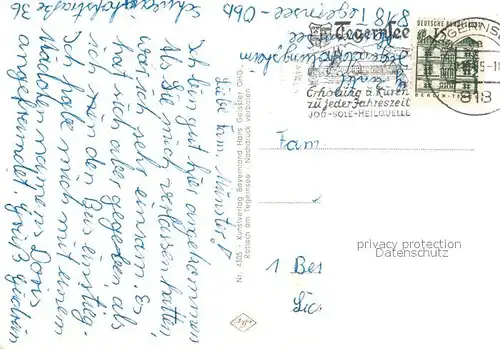 818 Tegernsee - Obb
Schwaighofstraße 36
Liebe Fam. Münster!
Ich bin gut hier angekommen
Als Sie mich verlassen hatten,
war ich sehr einsam. Es
hat sich aber gegeben, als
ich in den Bus einstieg.
Ich habe mich mit einem
Mädchen namens Doris
angefreundet. Gruß Gudrun
Nr. 4505 - Kunstverlag Bayernland Hans Geissler OHG.
Rottach am Tegernsee - Nachdruck verboten
Tegernsee
Erholung u. Kuren
zu jeder Jahreszeit
JOD-SOLE-HEILQUELLE
DEUTSCHE BUNDESPOST
15
TEGERNSEE
818
Fam.
1 Be
privacy protection
Datenschutz